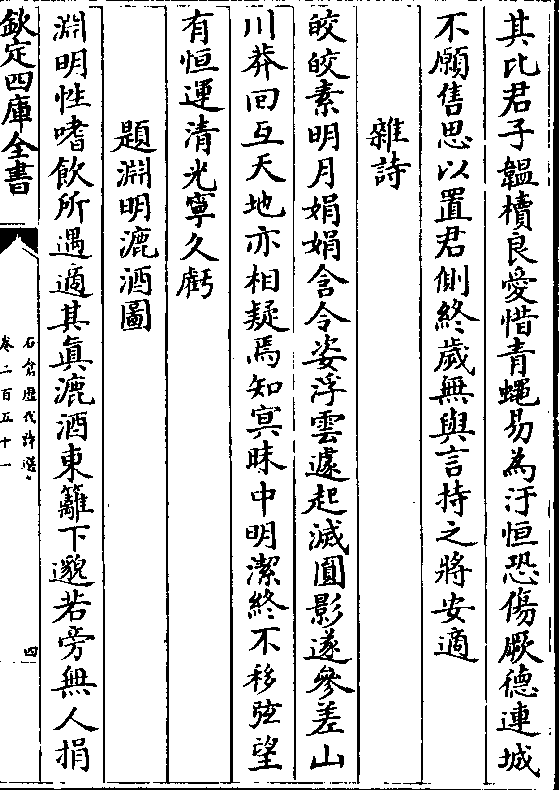 其比君子韞櫝良愛惜青蠅易為汙恒恐傷厥德連城
不願售思以置君側終歲無與言持之將安適
雜詩
皎皎素明月娟娟含令姿浮雲遽起滅圓影遂參差山
川莽回互天地亦相疑焉知冥昧中明潔終不移弦望
有恒運清光寧久虧
題淵明漉酒圖
淵明性嗜飲所遇適其真漉酒東籬下邈若旁無人捐
欽定四庫全書
石倉歷代詩選
卷二百五十一
四